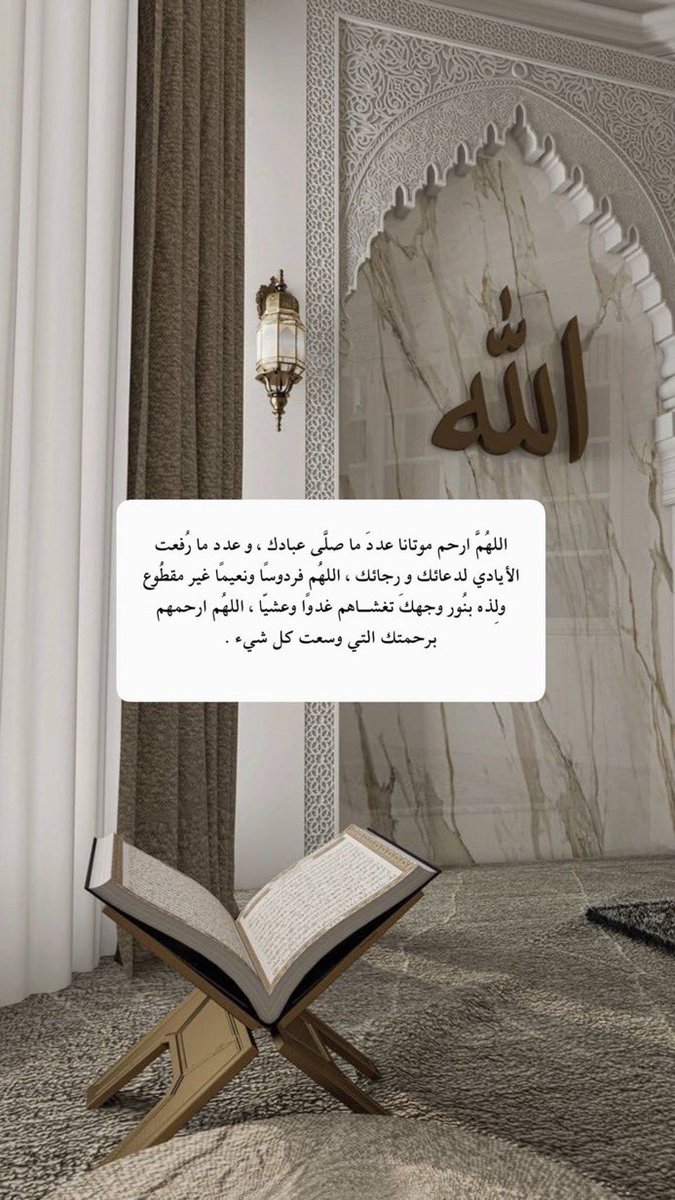 الله
اللهُمَّ ارحم موتانا عددَ ما صلَّى عبادك ، و عدد ما رُفعت
الأيادي لدعائك و رجائك ، اللهُم فردوسًا ونعيمًا غير مقطُوع
ولِذه بنُور وجهكَ تغشـــاهم غدوًا وعشيّا ، اللهُم ارحمهم
برحمتك التي وسعت كل شيء .